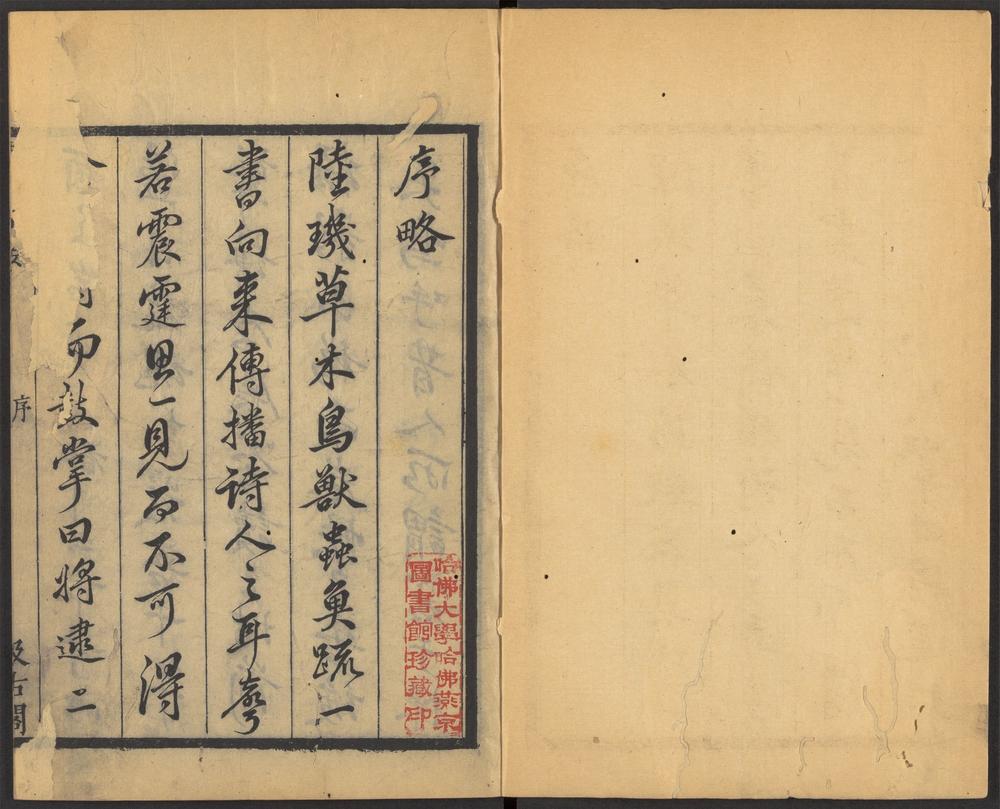 序略
陸璣草木鳥獸蟲魚疏一
書向来傳播詩人之耳聲
若震霆思一見而不可得
而鼓掌曰將逮二
序
汲古閣
哈佛大學哈佛燕京
圖書館珍藏印